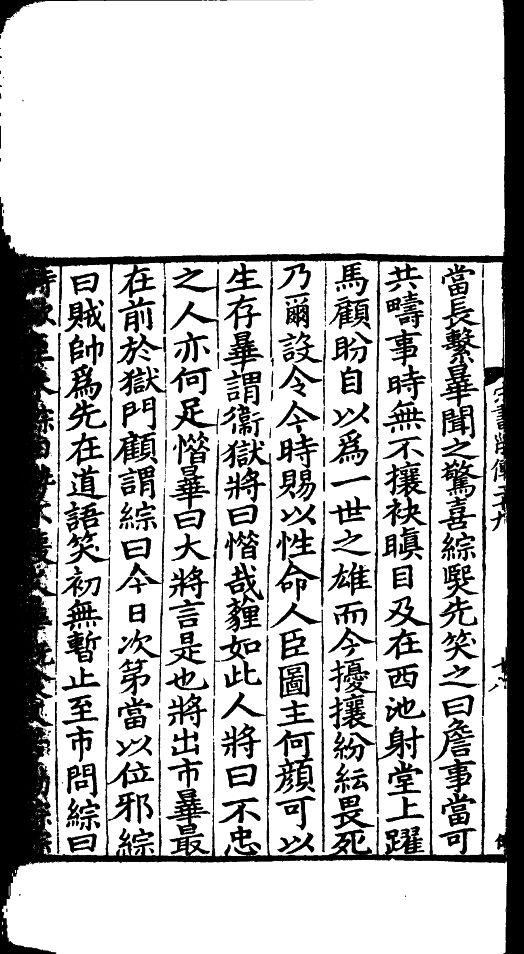 當長繫曅聞之驚喜綜熙先笑之曰詹事當可
共疇事時無不攘袂瞋目及在西池射堂上躍
馬顧盼自以爲一世之雄而今擾攘紛紜畏死
乃爾設令今時賜以性命人臣圖主何顔可以
生存曅謂衞獄將曰惜哉薶如此人將曰不忠
之人亦何足惜曅曰大將言是也將出市曅最
在前於獄門顧謂綜曰今日次第當以位邪綜
曰賊帥爲先在道語笑初無暫止至市問綜曰